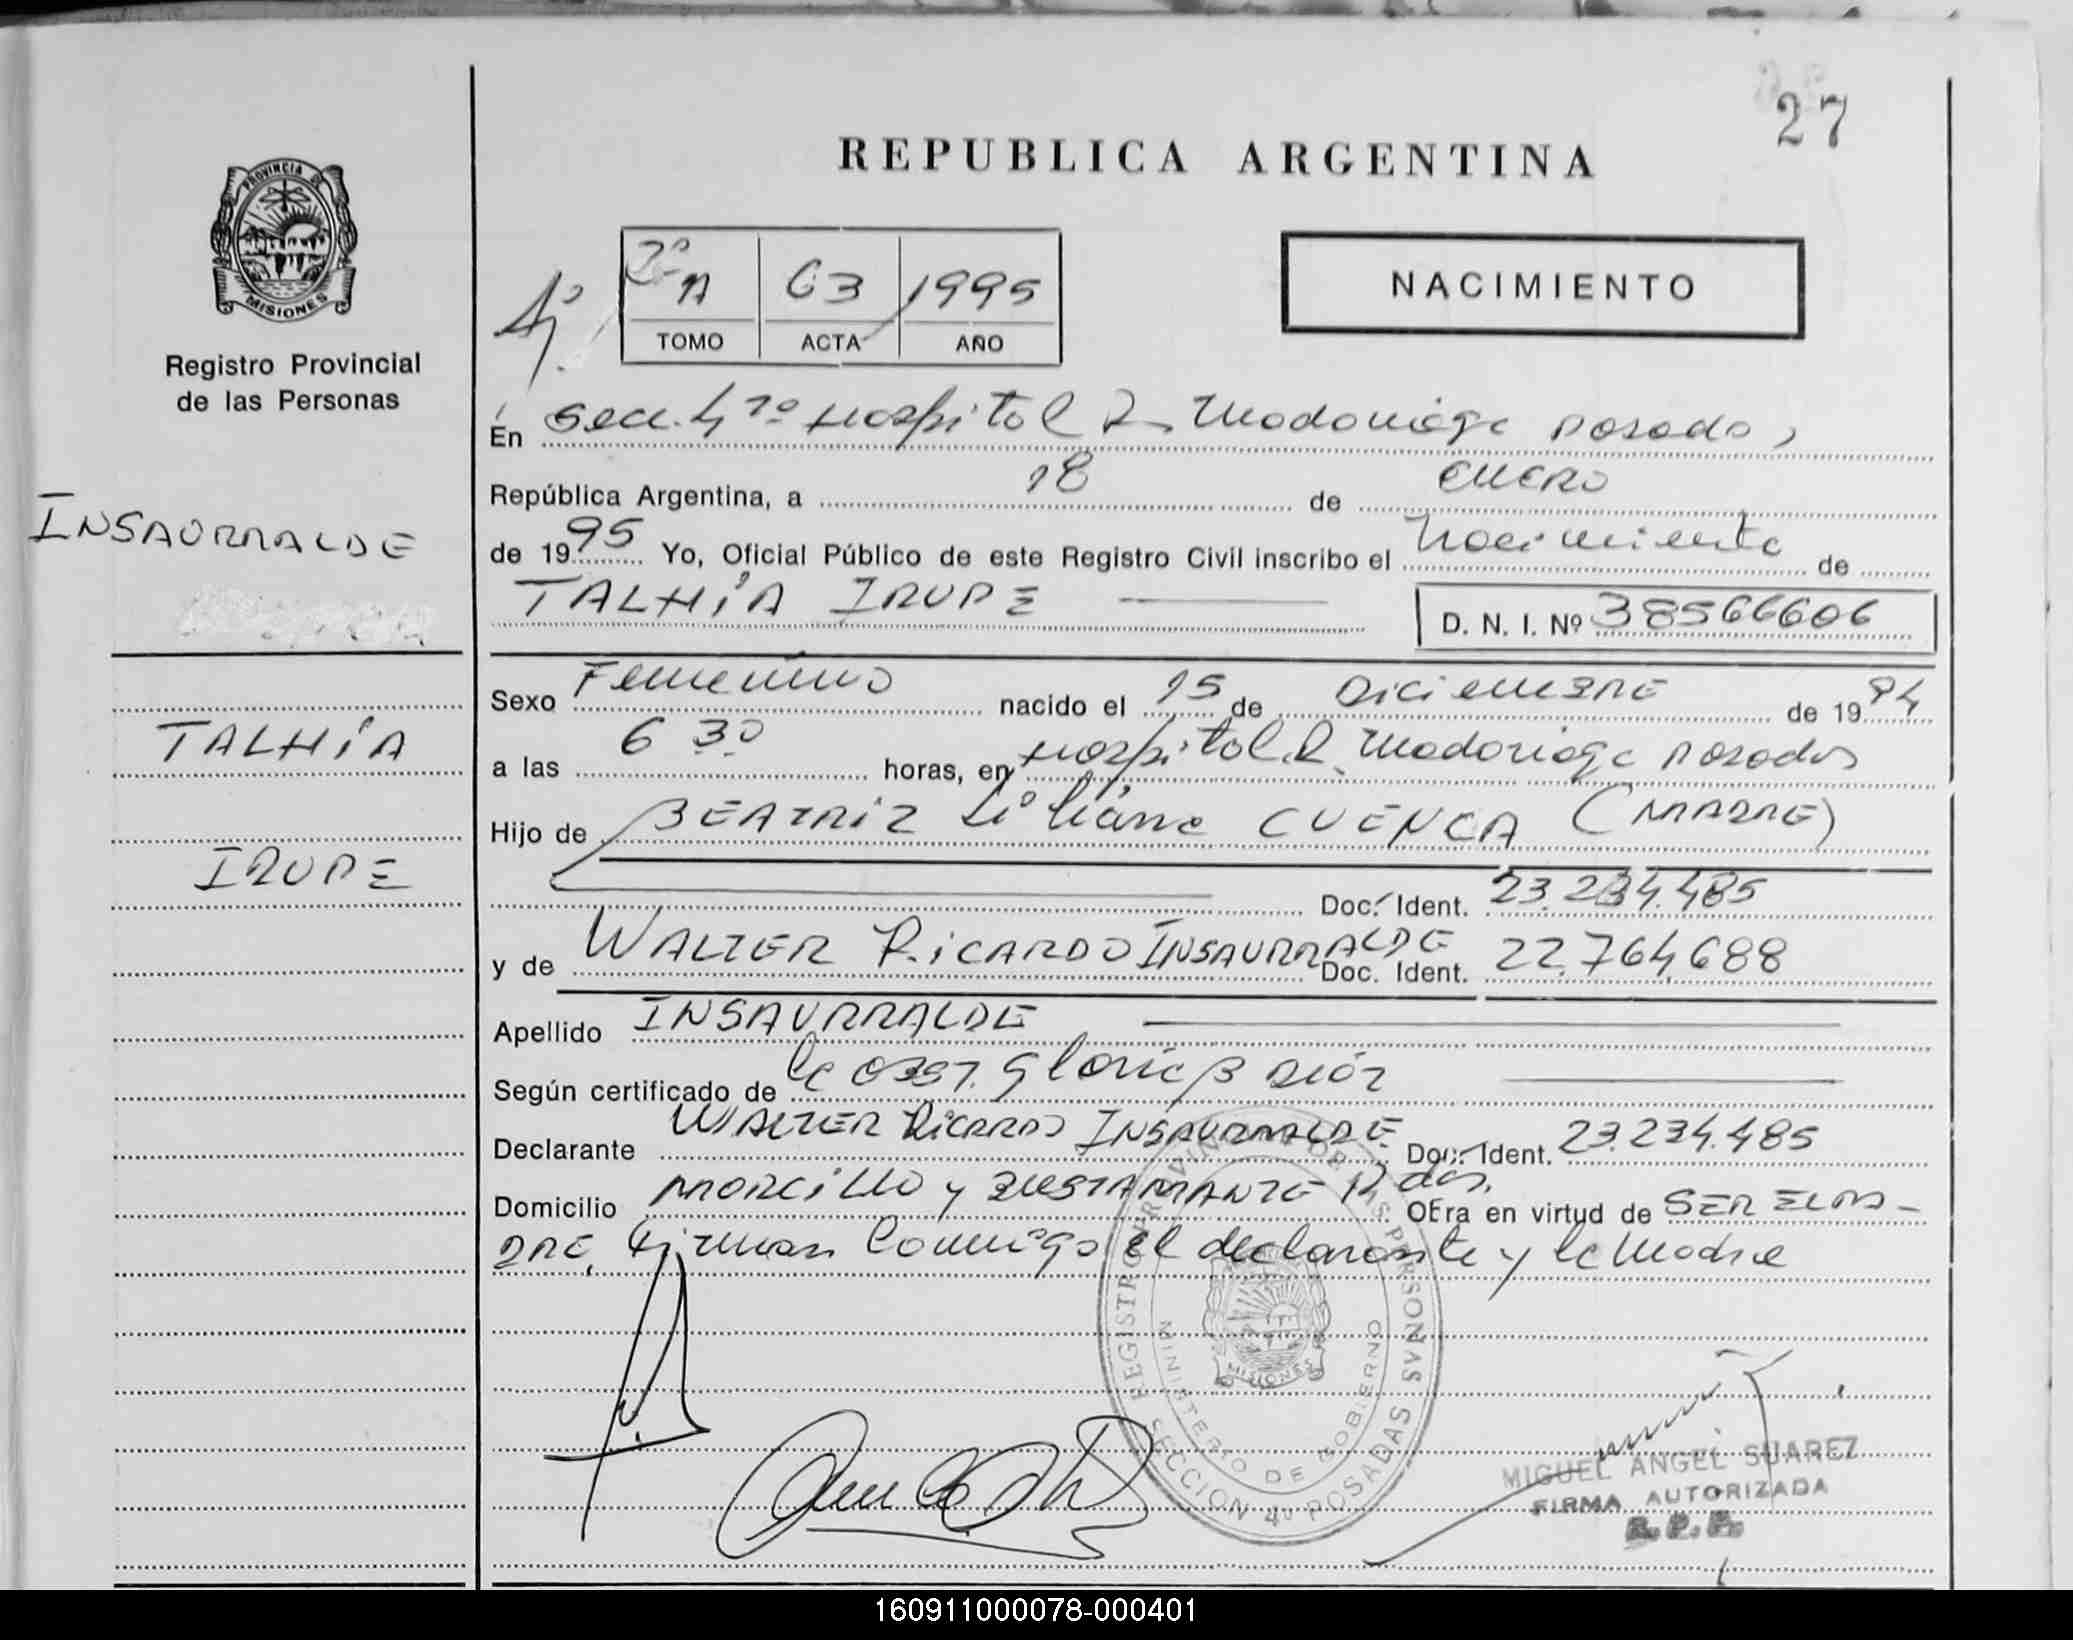 27
REPUBLICA ARGENTINA
PROVINCIA DE
MISIONES
Registro Provincial
de las Personas
2º A 63 1995
TOMO ACTA AÑO
NACIMIENTO
En Secc. 4ta Hospital R. Madariaga Posadas,
República Argentina, a 18 de enero
de 1995 Yo, Oficial Público de este Registro Civil inscribo el Nacimiento de
TALHÍA IRUPE D. N. I. Nº 38566606
INSAURRALDE
TALHÍA
IRUPE
Sexo Femenino nacido el 15 de Diciembre de 1994
a las 6 30 horas, en Hospital R. Madariaga Posadas
Hijo de BEATRIZ Liliana CUENCA (MADRE)
Doc. Ident. 23.234.485
y de WALTER RICARDO INSAURRALDE Doc. Ident. 22.764.688
Apellido INSAURRALDE
Según certificado de la Obst. Gloria B Diaz
Declarante WALTER RICARDO INSAURRALDE Doc. Ident. 23.234.485
Domicilio MORCILLO y BUSTAMANTE Pdas. Obra en virtud de SER EL PA-
DRE, Firman Conmigo el declarante y la Madre
REGISTRO PROVINCIAL DE LAS PERSONAS
MINISTERIO DE GOBIERNO
MISIONES
SECCION 4a POSADAS
MIGUEL ANGEL SUAREZ
FIRMA AUTORIZADA
R. P. P.
160911000078-000401